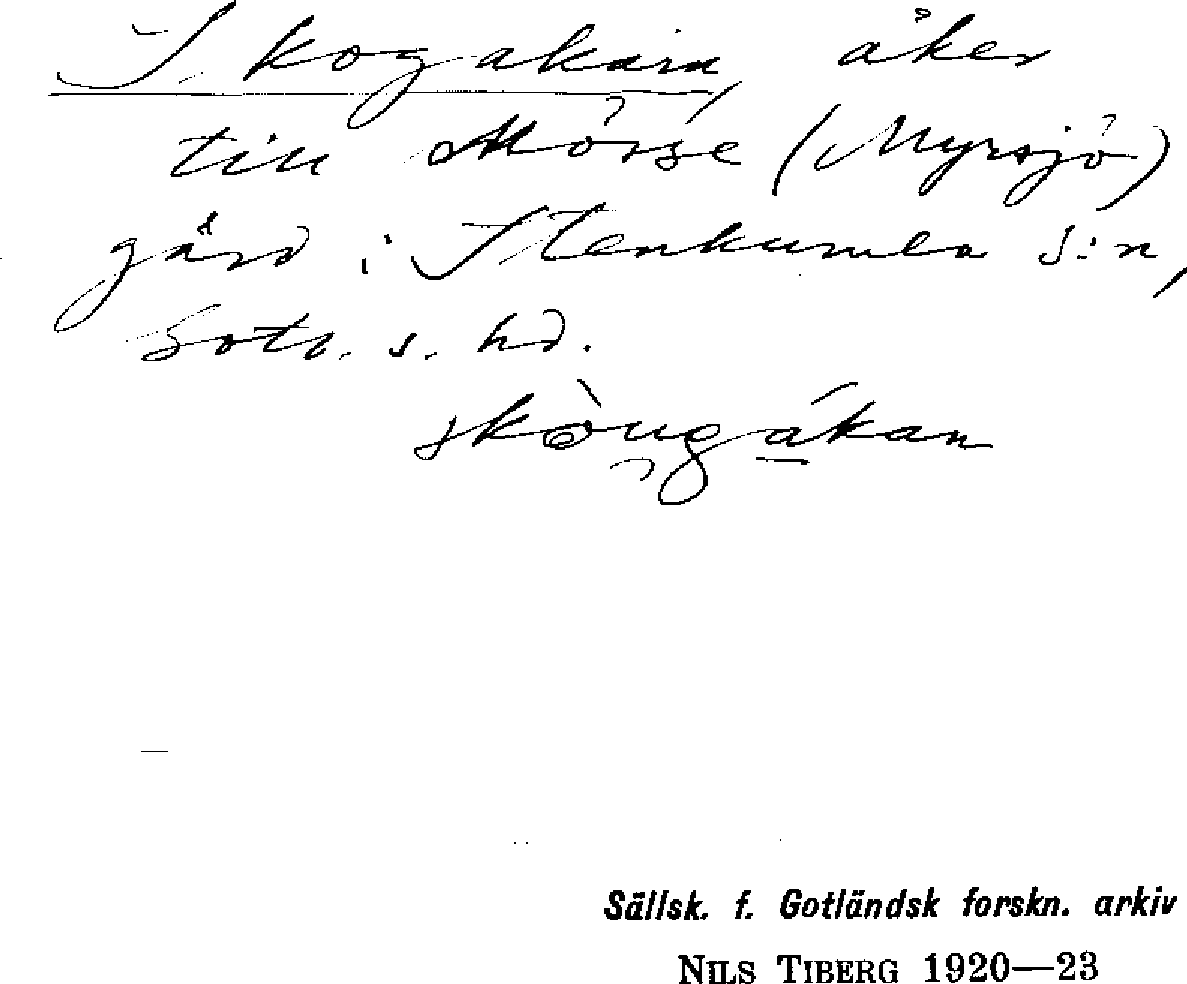 Skogakarn, åker
till Mörse (Myrsjö)
gård i Stenkumla s:n,
Gotl. s. hd.
skòugákan
Sällsk. f. Gotländsk forskn. arkiv
NILS TIBERG 1920—23